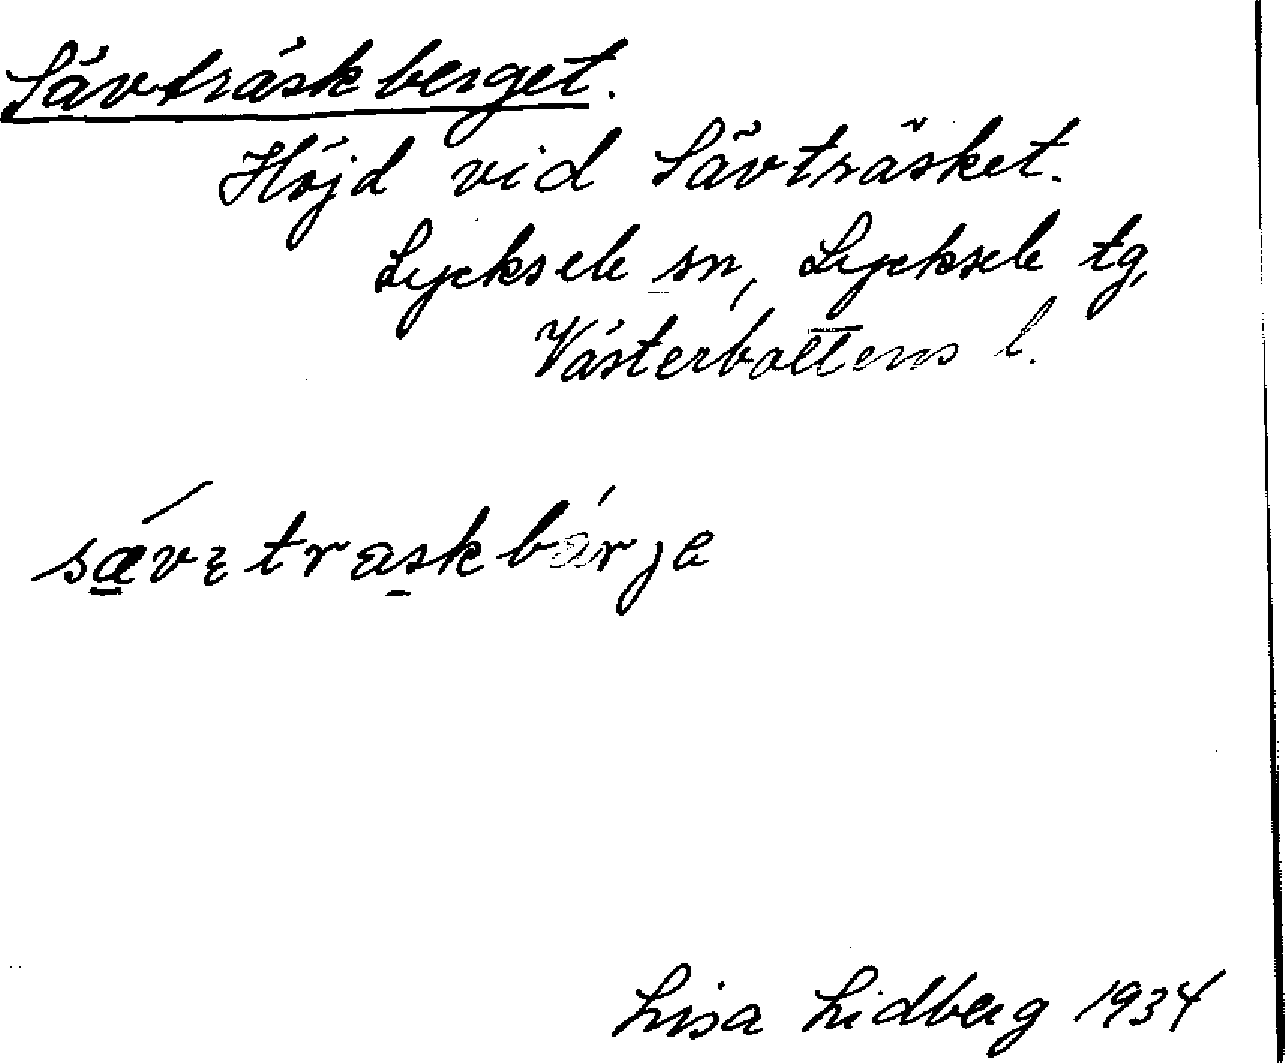 Sävträskberget.
Höjd vid Sävträsket.
Lycksele sn, Lycksele tg,
Västerbottens l.
Lisa Lidberg 1934